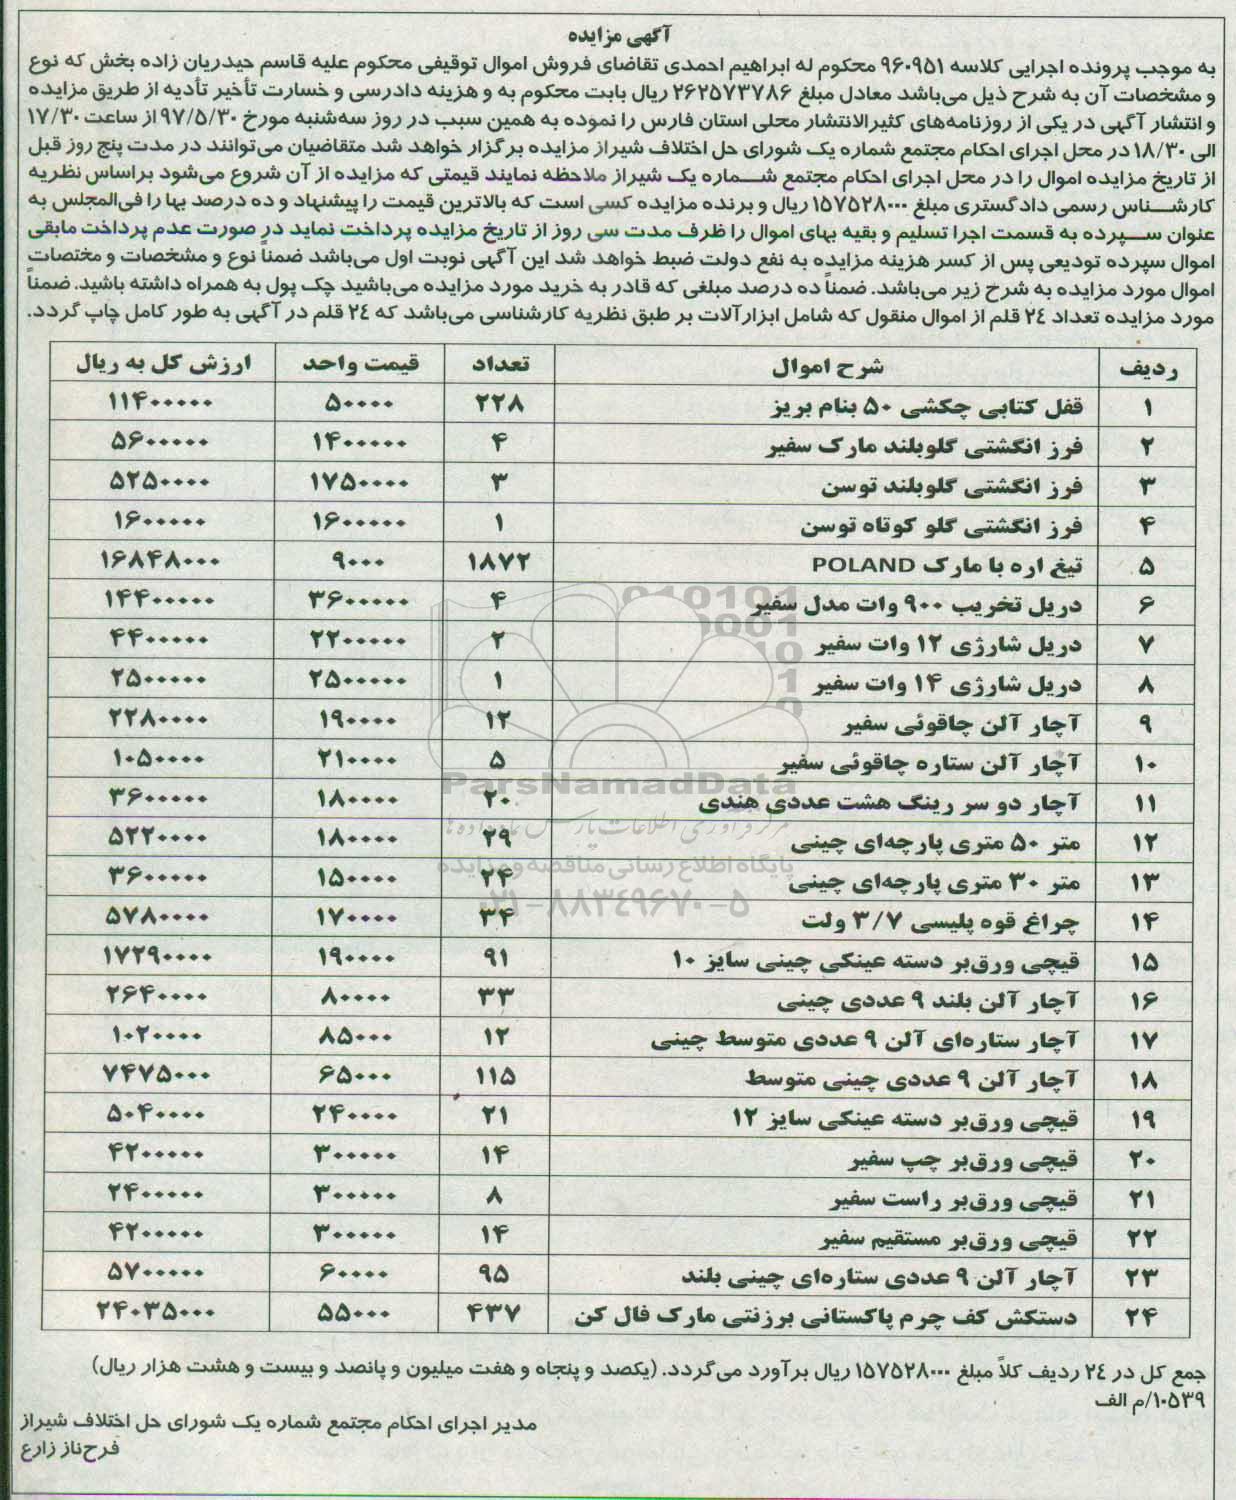 آگهی مزایده
به موجب پرونده اجرایی کلاسه ۹۶۰۹۵۱ محکوم له ابراهیم احمدی تقاضای فروش اموال توقیفی محکوم علیه قاسم حیدریان زاده بخش که نوع
و مشخصات آن به شرح ذیل می‌باشد معادل مبلغ ۲۶۲۵۷۳۷۸۶ ریال بابت محکوم به و هزینه دادرسی و خسارت تأخیر تأدیه از طریق مزایده
و انتشار آگهی در یکی از روزنامه‌های کثیرالانتشار محلی استان فارس را نموده به همین سبب در روز سه‌شنبه مورخ ۹۷/۵/۳۰ از ساعت ۱۷/۳۰
الی ۱۸/۳۰ در محل اجرای احکام مجتمع شماره یک شورای حل اختلاف شیراز مزایده برگزار خواهد شد متقاضیان می‌توانند در مدت پنج روز قبل
از تاریخ مزایده اموال را در محل اجرای احکام مجتمع شماره یک شیراز ملاحظه نمایند قیمتی که مزایده از آن شروع می‌شود براساس نظریه
کارشناس رسمی دادگستری مبلغ ۱۵۷۵۲۸۰۰۰ ریال و برنده مزایده کسی است که بالاترین قیمت را پیشنهاد و ده درصد بها را فی‌المجلس به
عنوان سپرده به قسمت اجرا تسلیم و بقیه بهای اموال را ظرف مدت سی روز از تاریخ مزایده پرداخت نماید در صورت عدم پرداخت مابقی
اموال سپرده تودیعی پس از کسر هزینه مزایده به نفع دولت ضبط خواهد شد این آگهی نوبت اول می‌باشد ضمناً نوع و مشخصات و مختصات
اموال مورد مزایده به شرح زیر می‌باشد. ضمناً ده درصد مبلغی که قادر به خرید مورد مزایده می‌باشید چک پول به همراه داشته باشید. ضمناً
مورد مزایده تعداد ۲۴ قلم از اموال منقول که شامل ابزارآلات بر طبق نظریه کارشناسی می‌باشد که ۲۴ قلم در آگهی به طور کامل چاپ گردد.
ردیف شرح اموال تعداد قیمت واحد ارزش کل به ریال
۱ قفل کتابی چکشی ۵۰ بنام بریز ۲۲۸ ۵۰۰۰۰ ۱۱۴۰۰۰۰۰
۲ فرز انگشتی گلوبلند مارک سفیر ۴ ۱۴۰۰۰۰۰ ۵۶۰۰۰۰۰
۳ فرز انگشتی گلوبلند توسن ۳ ۱۷۵۰۰۰۰ ۵۲۵۰۰۰۰
۴ فرز انگشتی گلو کوتاه توسن ۱ ۱۶۰۰۰۰۰ ۱۶۰۰۰۰۰
۵ تیغ اره با مارک POLAND ۱۸۷۲ ۹۰۰۰ ۱۶۸۴۸۰۰۰
۶ دریل تخریب ۹۰۰ وات مدل سفیر ۴ ۳۶۰۰۰۰۰ ۱۴۴۰۰۰۰۰
۷ دریل شارژی ۱۲ وات سفیر ۲ ۲۲۰۰۰۰۰ ۴۴۰۰۰۰۰
۸ دریل شارژی ۱۴ وات سفیر ۱ ۲۵۰۰۰۰۰ ۲۵۰۰۰۰۰
۹ آچار آلن چاقوئی سفیر ۱۲ ۱۹۰۰۰۰ ۲۲۸۰۰۰۰
۱۰ آچار آلن ستاره چاقوئی سفیر ۵ ۲۱۰۰۰۰ ۱۰۵۰۰۰۰
۱۱ آچار دو سر رینگ هشت عددی هندی ۲۰ ۱۸۰۰۰۰ ۳۶۰۰۰۰۰
۱۲ متر ۵۰ متری پارچه‌ای چینی ۲۹ ۱۸۰۰۰۰ ۵۲۲۰۰۰۰
۱۳ متر ۳۰ متری پارچه‌ای چینی ۲۴ ۱۵۰۰۰۰ ۳۶۰۰۰۰۰
۱۴ چراغ قوه پلیسی ۳/۷ ولت ۳۴ ۱۷۰۰۰۰ ۵۷۸۰۰۰۰
۱۵ قیچی ورق‌بر دسته عینکی چینی سایز ۱۰ ۹۱ ۱۹۰۰۰۰ ۱۷۲۹۰۰۰۰
۱۶ آچار آلن بلند ۹ عددی چینی ۳۳ ۸۰۰۰۰ ۲۶۴۰۰۰۰
۱۷ آچار ستاره‌ای آلن ۹ عددی متوسط چینی ۱۲ ۸۵۰۰۰ ۱۰۲۰۰۰۰
۱۸ آچار آلن ۹ عددی چینی متوسط ۱۱۵ ۶۵۰۰۰ ۷۴۷۵۰۰۰
۱۹ قیچی ورق‌بر دسته عینکی سایز ۱۲ ۲۱ ۲۴۰۰۰۰ ۵۰۴۰۰۰۰
۲۰ قیچی ورق‌بر چپ سفیر ۱۴ ۳۰۰۰۰۰ ۴۲۰۰۰۰۰
۲۱ قیچی ورق‌بر راست سفیر ۸ ۳۰۰۰۰۰ ۲۴۰۰۰۰۰
۲۲ قیچی ورق‌بر مستقیم سفیر ۱۴ ۳۰۰۰۰۰ ۴۲۰۰۰۰۰
۲۳ آچار آلن ۹ عددی ستاره‌ای چینی بلند ۹۵ ۶۰۰۰۰ ۵۷۰۰۰۰۰
۲۴ دستکش کف چرم پاکستانی برزنتی مارک فال کن ۴۳۷ ۵۵۰۰۰ ۲۴۰۳۵۰۰۰
ParsNamadData
پایگاه اطلاع رسانی مناقصه و مزایده
۰۲۱-۸۸۳۴۹۶۷۰-۵
جمع کل در ۲۴ ردیف کلاً مبلغ ۱۵۷۵۲۸۰۰۰ ریال برآورد می‌گردد. (یکصد و پنجاه و هفت میلیون و پانصد و بیست و هشت هزار ریال)
۱۰۵۳۹/م الف
مدیر اجرای احکام مجتمع شماره یک شورای حل اختلاف شیراز
فرح‌ناز زارع